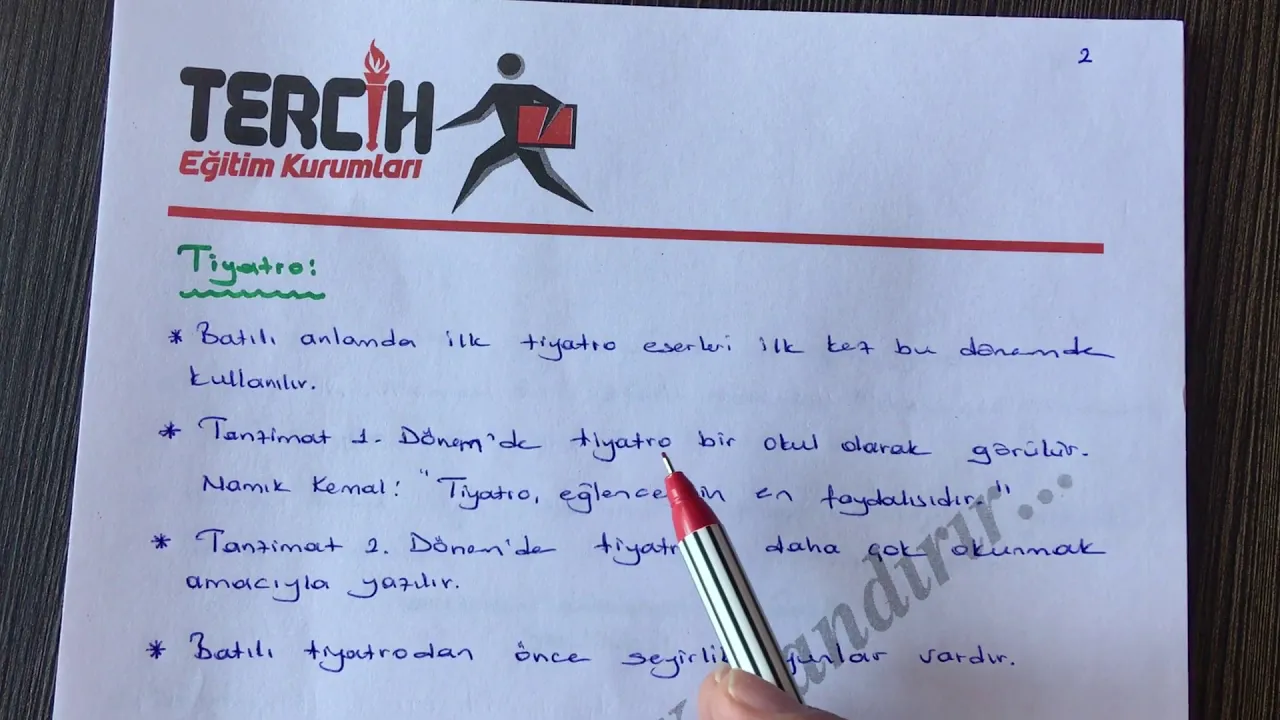 2
TERCİH
Eğitim Kurumları
Tiyatro:
* Batılı anlamda ilk tiyatro eserleri ilk kez bu dönemde
kullanılır.
* Tanzimat 1. Dönem'de tiyatro bir okul olarak görülür.
Namık Kemal: "Tiyatro, eğlencenin en faydalısıdır."
* Tanzimat 2. Dönem'de tiyatro daha çok okunmak
amacıyla yazılır.
* Batılı tiyatrodan önce seyirlik oyunlar vardır.